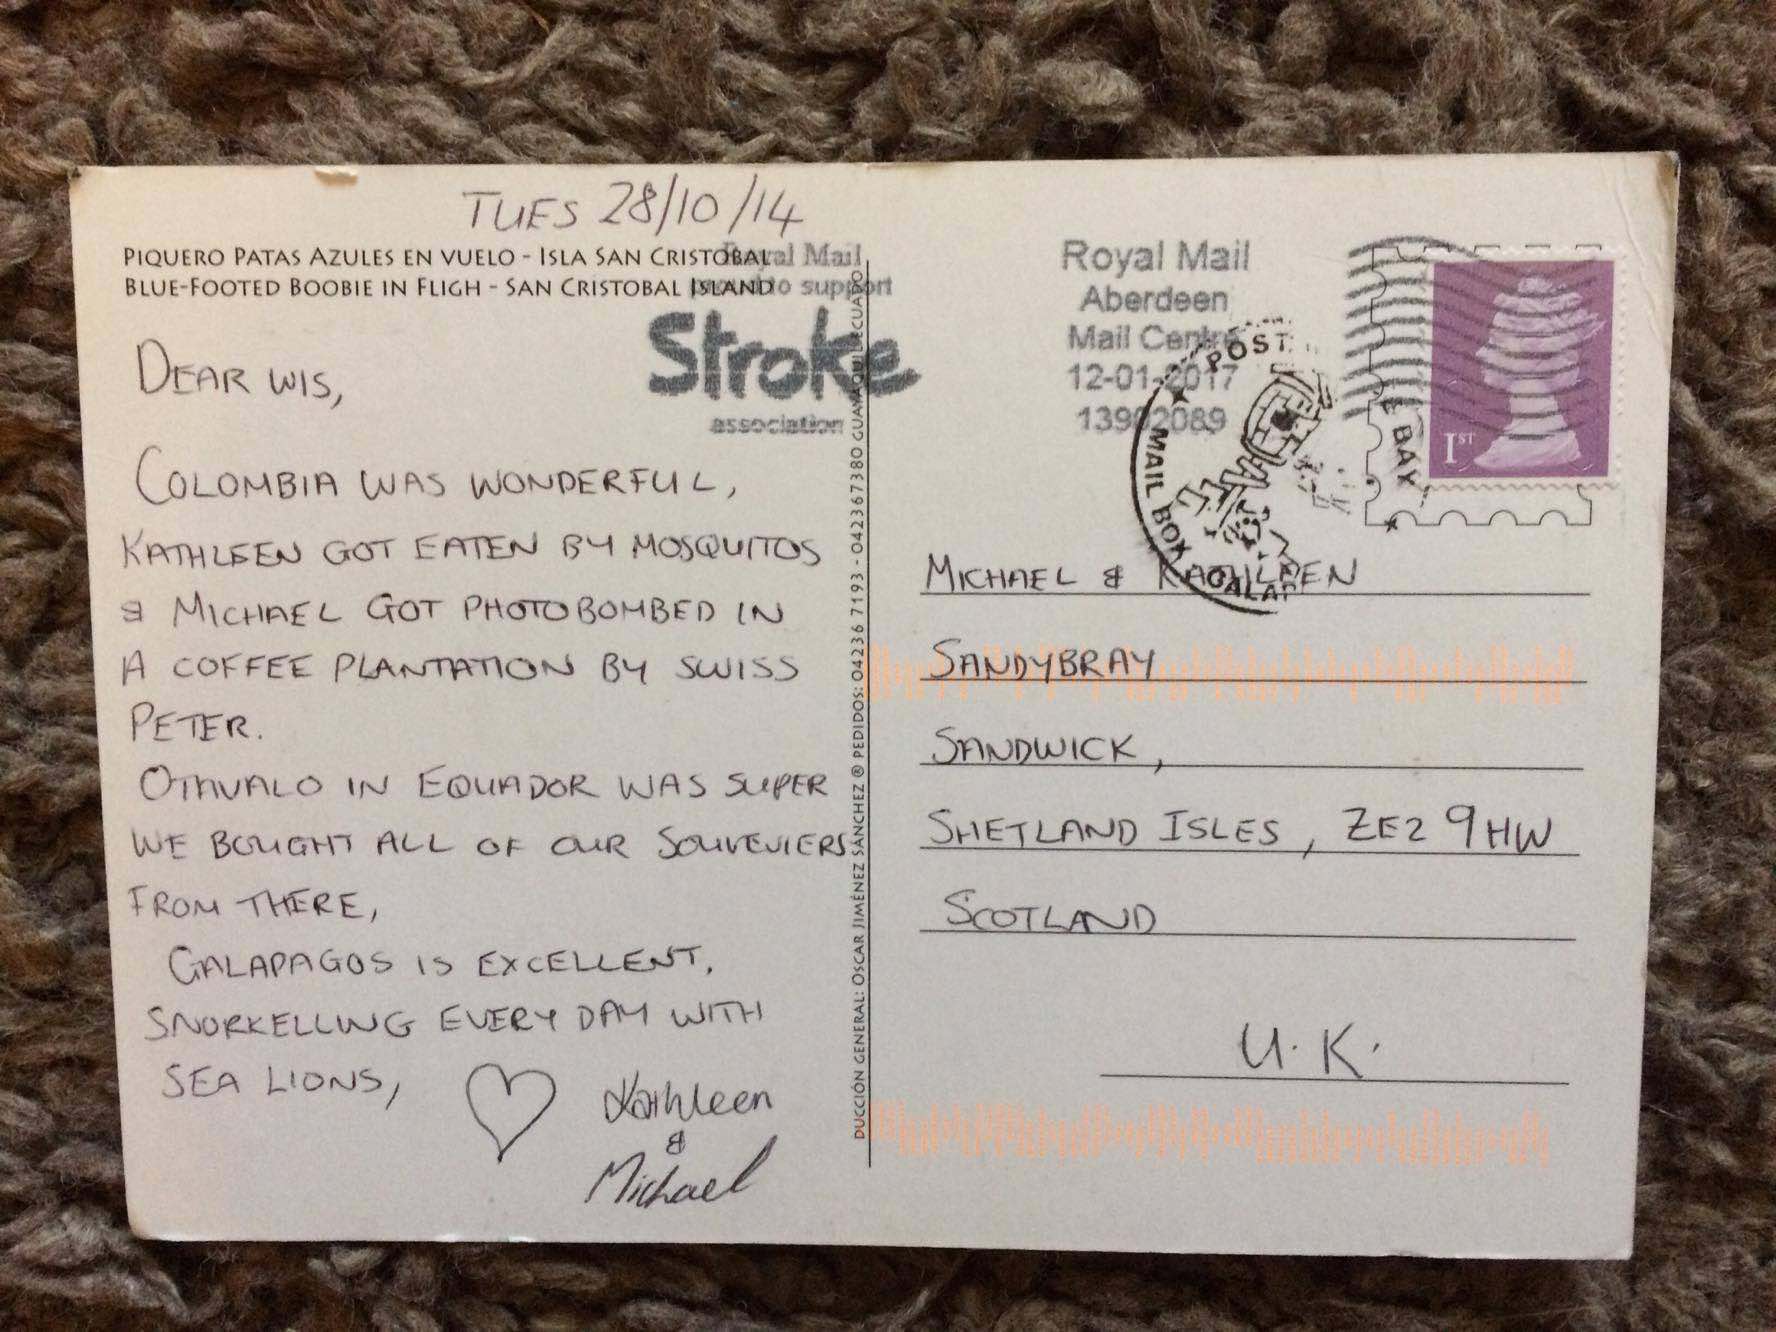 TUES 28/10/14
PIQUERO PATAS AZULES EN VUELO - ISLA SAN CRISTOBAL
BLUE-FOOTED BOOBIE IN FLIGH - SAN CRISTOBAL ISLAND
Royal Mail
to support
Stroke
association
DEAR WIS,
COLOMBIA WAS WONDERFUL,
KATHLEEN GOT EATEN BY MOSQUITOS
& MICHAEL GOT PHOTOBOMBED IN
A COFFEE PLANTATION BY SWISS
PETER.
OTAVALO IN EQUADOR WAS SUPER
WE BOUGHT ALL OF OUR SOUVEVIERS
FROM THERE,
GALAPAGOS IS EXCELLENT.
SNORKELLING EVERY DAY WITH
SEA LIONS,
Kathleen
&
Michael
DUCCIÓN GENERAL: OSCAR JIMÉNEZ SÁNCHEZ ® PEDIDOS: 04236 7193 - 042367380 GUAYAQUIL ECUADO
Royal Mail
Aberdeen
Mail Centre
12-01-2017
13902089
POST
MAIL BOX GALAP
E BAY
1ST
MICHAEL & KATHLEEN
SANDYBRAY
SANDWICK,
SHETLAND ISLES, ZE2 9HW
SCOTLAND
U.K.